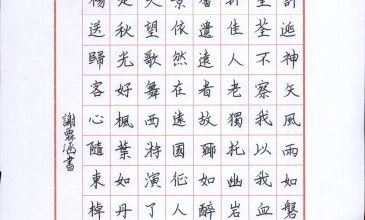 計逃神矢風雨如磐
星荃不察我以我血
折佳人老獨托幽岩
馨遺遠者故鄉如醉
景依然在遠國征人
天望歌舞西游演了
是秋光好楓葉如丹
楊送歸客心隨東棹
謝霖涵書